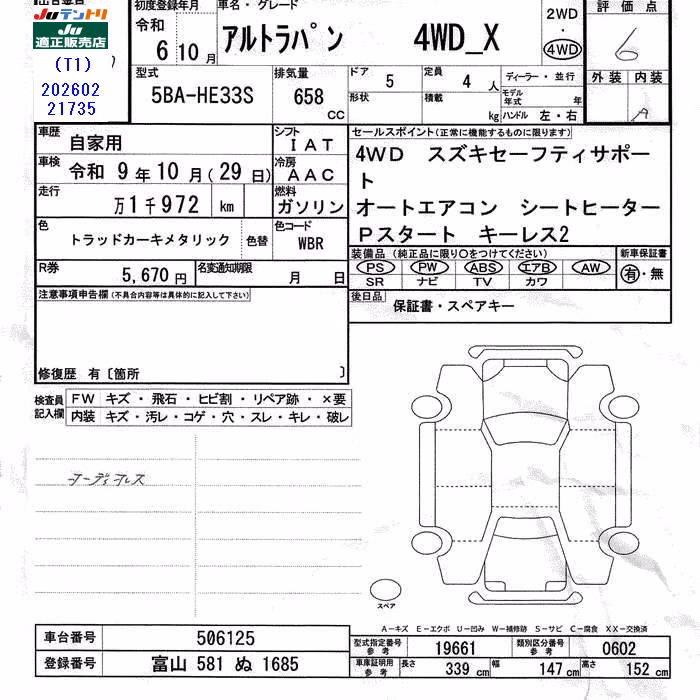 Juテントリ
Ju
適正販売店
(T1)
202602
21735
初度登録年月
令和
6 10 月
車名・グレード
アルトラパン 4WD_X
2WD
・
4WD
評価点
6
型式
5BA-HE33S
排気量
658
CC
ドア 5
定員 4 人
形状
積載 kg
ディーラー・並行
モデル年式 年
ハンドル 左・右
外装 内装
A
車歴 自家用
シフト
IAT
車検 令和 9 年 10 月 (29 日)
冷房
AAC
走行
万 1 千 972 km
燃料
ガソリン
色
トラッドカーキメタリック
色替
色コード
WBR
R券 5,670 円
名変通知期限 月 日
セールスポイント(正常に機能するものに限ります)
4WD スズキセーフティサポー
ト
オートエアコン シートヒーター
Pスタート キーレス2
装備品 (純正品に限り○をつけてください)
新車保証書
PS PW ABS エアB AW
有・無
SR ナビ TV カワ
後日品
保証書・スペアキー
注意事項申告欄 (不具合内容等は具体的に記入して下さい)
修復歴 有〔箇所 〕
検査員
記入欄
FW キズ ・ 飛石 ・ ヒビ割 ・ リペア跡 ・ ×要
内装 キズ ・ 汚レ ・ コゲ ・ 穴 ・ スレ ・ キレ ・ 破レ
オーディオレス
スペア
A-キズ E-エクボ U-凹み W-補修跡 S-サビ C-腐食 XX-交換済
車台番号 506125
登録番号 富山 581 ぬ 1685
型式指定番号
参考
19661
類別区分番号
参考
0602
車庫証明用
参考
長さ 339 cm 幅 147 cm 高さ 152 cm